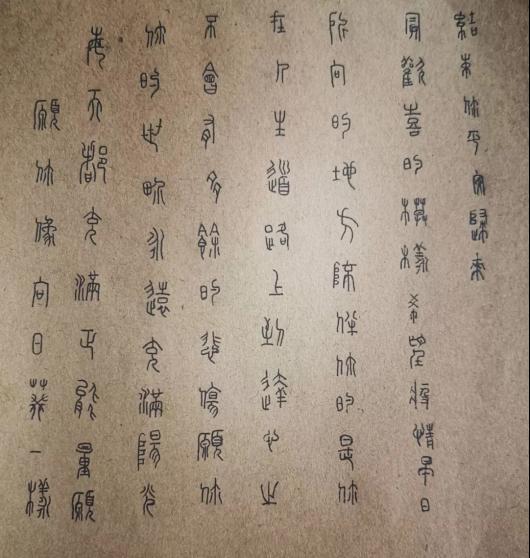 願你像向日葵一樣
每天都充滿正能量願
你的世畍永遠充滿陽光
不會有多餘的悲傷願你
在人生道路上到達心之
所向的地方陪伴你的是你
歡喜的模樣希望疫情早日
結束你平安歸來